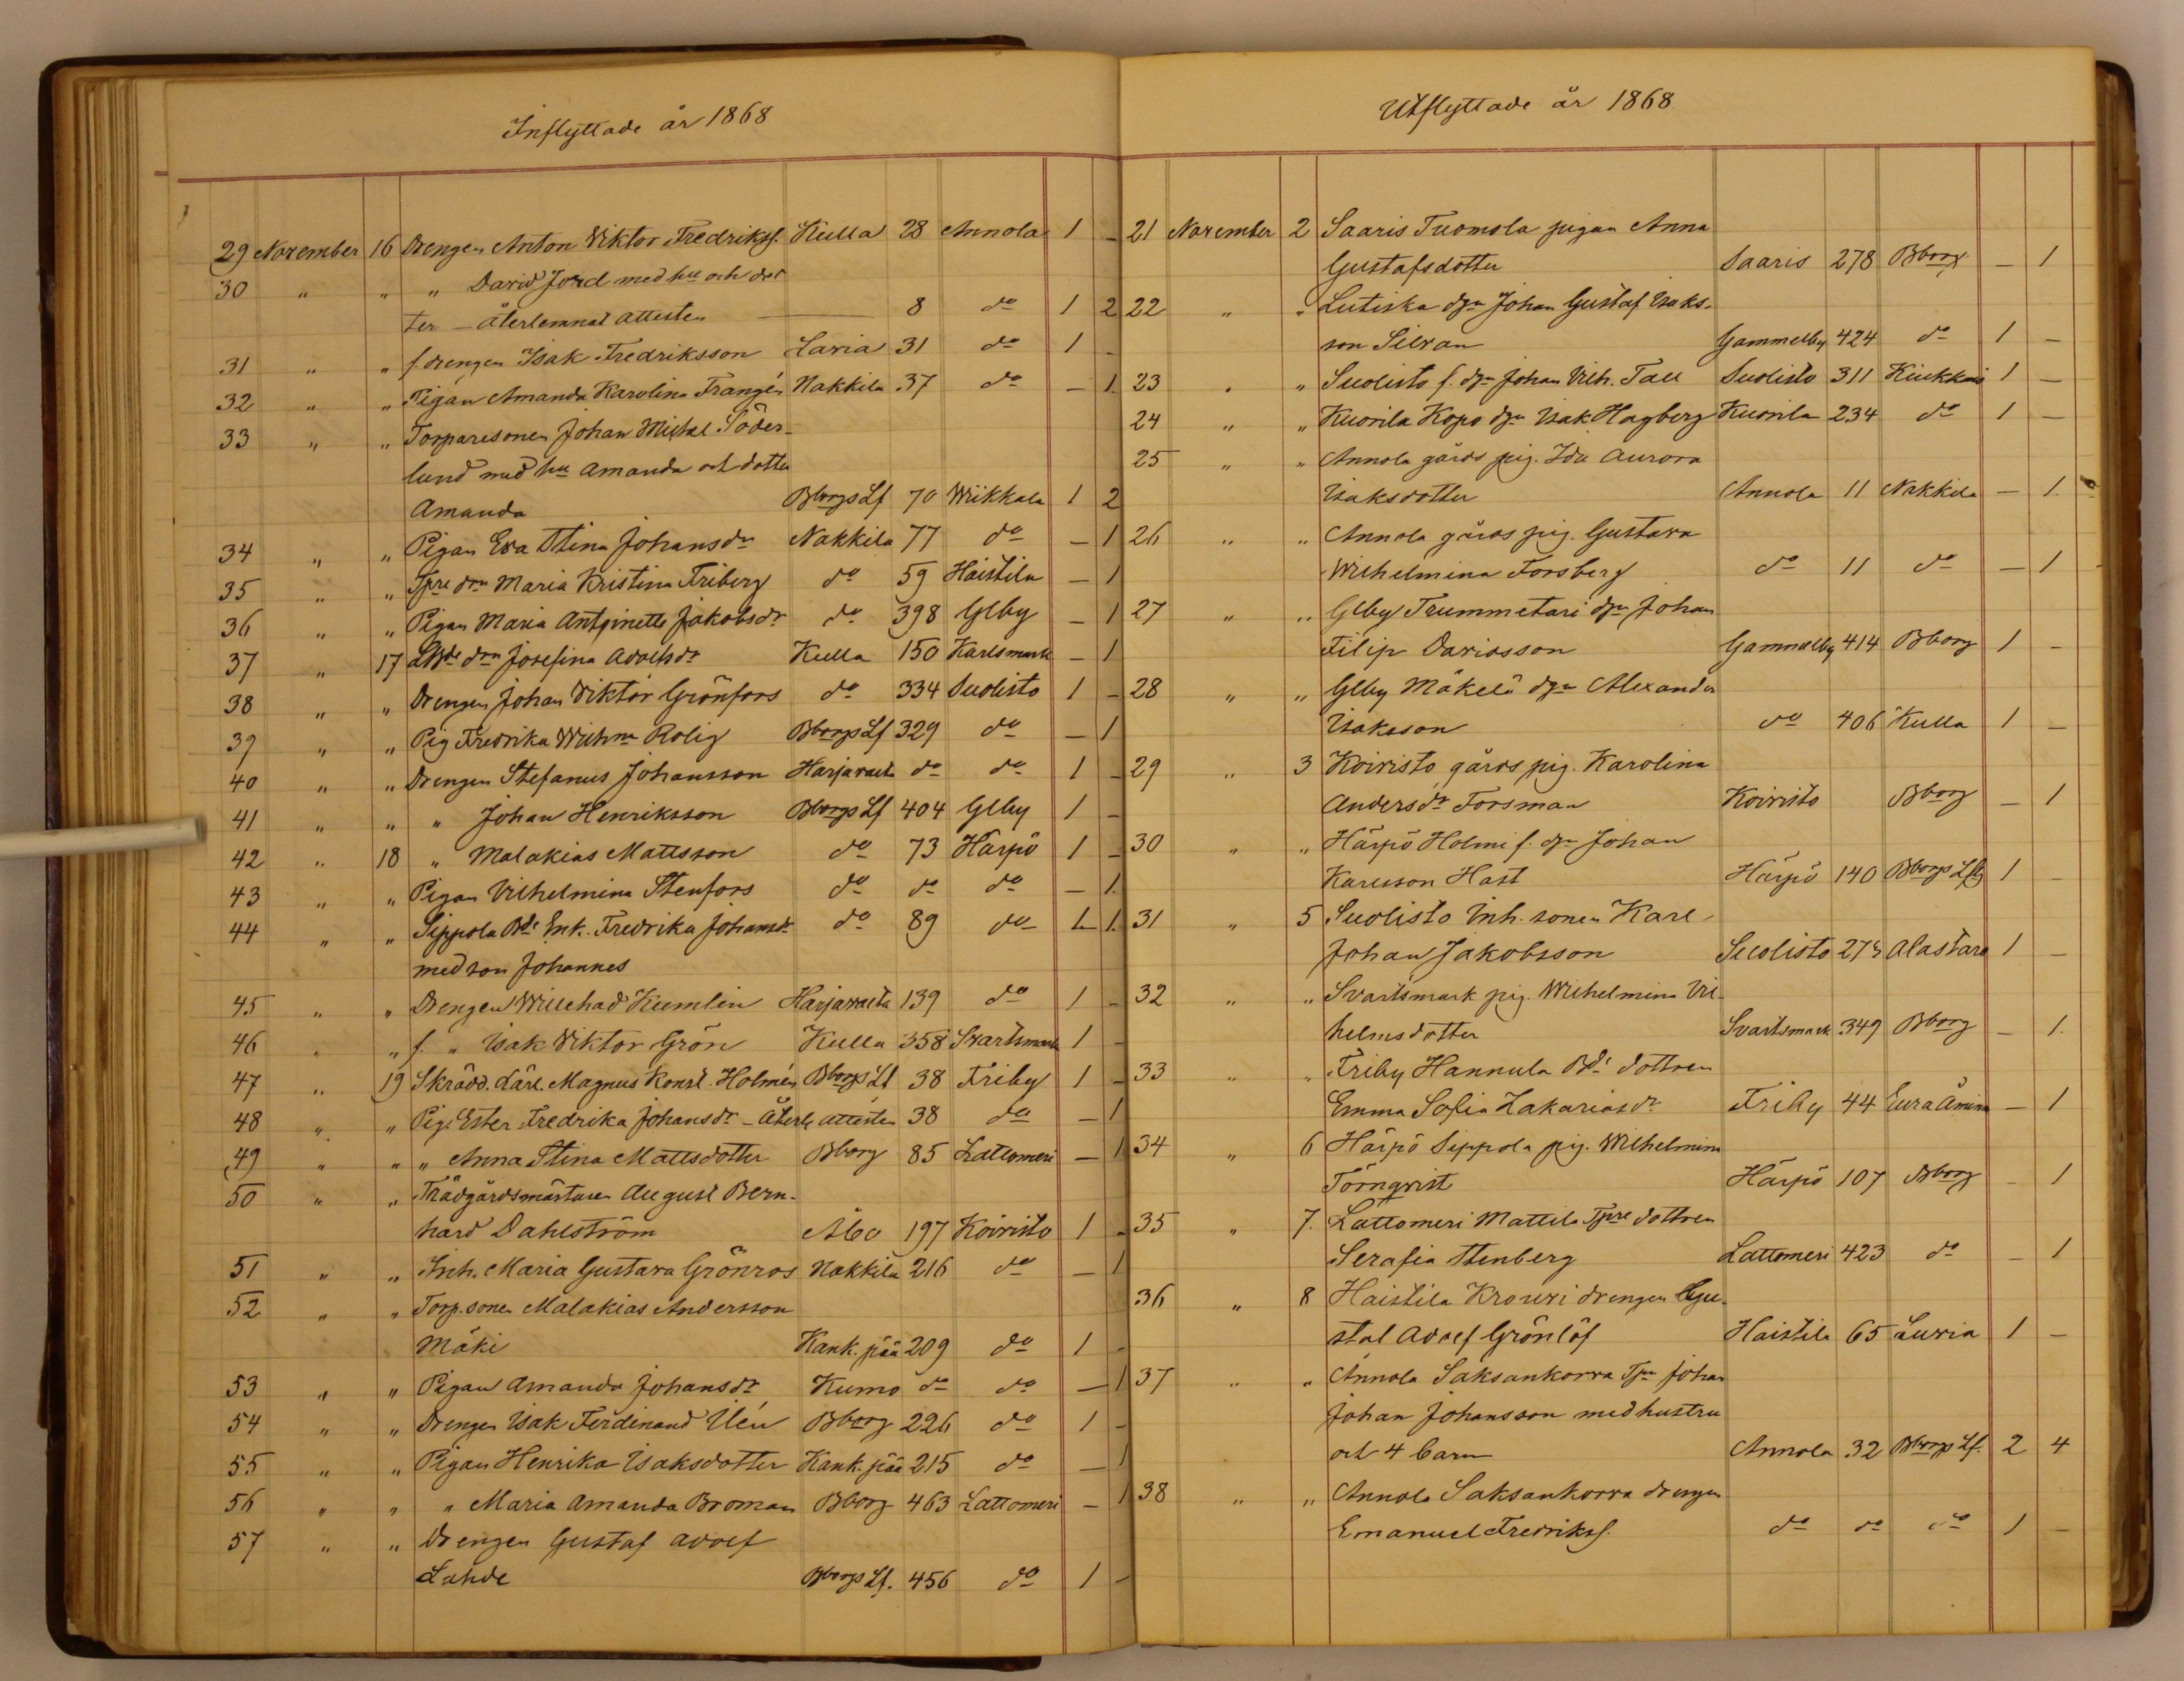 Inflyttade år 1868
29 November 16 Drengen Anton Viktor Fredrikss. Kulla 28 Annola 1 –
30 " " " David Jord med hu och dot
ter – återlemnat attesten — 8 do 1 2
31 " " f. drengen Isak Fredriksson Lavia 31 do 1 –
32 " " Pigan Amanda Karolina Frangén Nakkila 37 do – 1
33 " " Torparesonen Johan Mickel Söder-
lund med hu Amanda och dotter
Amanda Bborgs Lf 70 Wiikkala 1 2
34 " " Pigan Eva Stina Johansdr Nakkila 77 do – 1
35 " " Tpre drn Maria Kristina Friberg do 59 Haistila – 1
36 " " Pigan Maria Antoinette Jakobsdr do 398 Glby – 1
37 " 17 drn Josefina Adolfsdr Kulla 150 Karlsmark – 1
38 " " Drengen Johan Viktor Grönfors do 334 Suolisto 1 –
39 " " Pig Fredrika Wilhna Rolig Bborgs Lf 329 do – 1
40 " " Drengen Stefanus Johansson Harjavalta do do 1 –
41 " " " Johan Henriksson Bborgs Lf 404 Glby 1 –
42 " 18 " Malakias Mattsson do 73 Härpö 1 –
43 " " Pigan Vilhelmina Stenfors do do do – 1
44 " " Sippola Bde Enk. Fredrika Johansdr do 89 do 1 1
med son Johannes
45 " " Drengen Willehad Kumlin Harjavalta 139 do 1 –
46 " " f. " Isak Viktor Grön Kulla 358 Svartsmark 1 –
47 " 19 Skrädd. lärl. Magnus Konst. Holmén Bborgs Lf 38 Friby 1 –
48 " " Pig. Ester Fredrika Johansdr – Återl attesten 38 do – 1
49 " " " Anna Stina Mattsdotter Bborg 85 Lattomeri – 1
50 " " Trädgårdsmästaren August Bern-
hard Dahlström Åbo 197 Koivisto 1 –
51 " " Inh. Maria Gustava Grönros Nakkila 216 do – 1
52 " " Torp.sonen Malakias Andersson
Mäki Kank.pää 209 do 1 –
53 " " Pigan Amanda Johansdr Kumo do do – 1
54 " " Drengen Isak Ferdinand Ilén Bborg 226 do 1 –
55 " " Pigan Henrika Isaksdotter Kank.pää 215 do – 1
56 " " " Maria Amanda Broman Bborg 463 Lattomeri – 1
57 " " Drengen Gustaf Adolf
Lahde Bborgs Lf. 456 do 1 –
Utflyttade år 1868
21 November 2 Saaris Tuomola pigan Anna
Gustafsdotter Saaris 278 Bborg – 1
22 " " Lutiska dgn Johan Gustaf Isaks-
son Silvan Gammelby 424 do 1 –
23 " " Suolisto f. dgn Johan Vilh. Tall Suolisto 311 Kiukkais 1 –
24 " " Kuorila Kopo dgn Isak Hagberg Kuorila 234 do 1 –
25 " " Annola gårds pig. Ida Aurora
Isaksdotter Annola 11 Nakkila – 1
26 " " Annola gårds pig. Gustava
Wilhelmina Forsberg do 11 do – 1
27 " " Glby Trummetari dgn Johan
Filip Davidsson Gammelby 414 Bborg 1 –
28 " " Glby Mäkelä dgn Alexander
Isaksson do 406 Kulla 1 –
29 " 3 Koivisto gårds pig. Karolina
Andersdr Forsman Koivisto Bborg – 1
30 " " Härpö Holmi f. dgn Johan
Karlsson Hast Härpö 140 Bborgs Lf 1 –
31 " 5 Suolisto Inh. sonen Karl
Johan Jakobsson Suolisto 275 Alastaro 1 –
32 " " Svartsmark pig. Wilhelmina Vil-
helmsdotter Svartsmark 349 Bborg – 1
33 " " Friby Hannula Bde dottren
Emma Sofia Zakariasdr Friby 44 Eura Åminn – 1
34 " 6 Härpö Sippola pig. Wilhelmina
Törnqvist Härpö 107 Bborg – 1
35 " 7 Lattomeri Mattila Tpre dottren
Serafia Stenberg Lattomeri 423 do – 1
36 " 8 Haistila Krouvi drengen Gu-
staf Adolf Grönlöf Haistila 65 Luvia 1 –
37 " " Annola Saksankorva Tpn Johan
Johan Johansson med hustru
och 4 barn Annola 32 Bborgs Lf. 2 4
38 " " Annola Saksankorva drengen
Emanuel Fredrikss. do do do 1 –